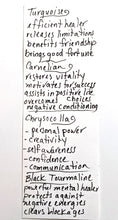 Turquoise
efficient healer
releases limitations
benefits friendship
brings good fortune
Carnelian
restores vitality
motivates for success
assists in positive life
overcomes choices
negative conditioning
Chrysocolla
- personal power
- creativity
- self awareness
- confidence
- communication
Black Tourmaline
powerful mental healer
protects against
negative energies
clears blockages